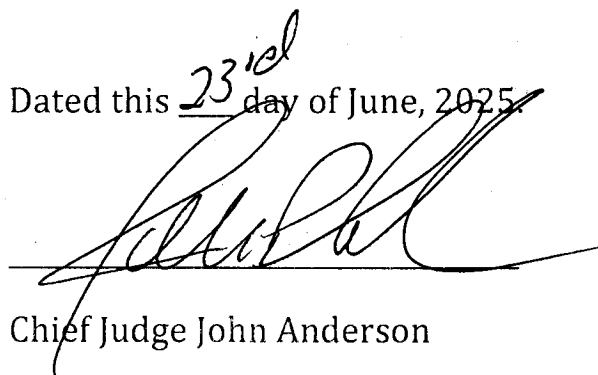 Dated this 23rd day of June, 2025.
Chief Judge John Anderson